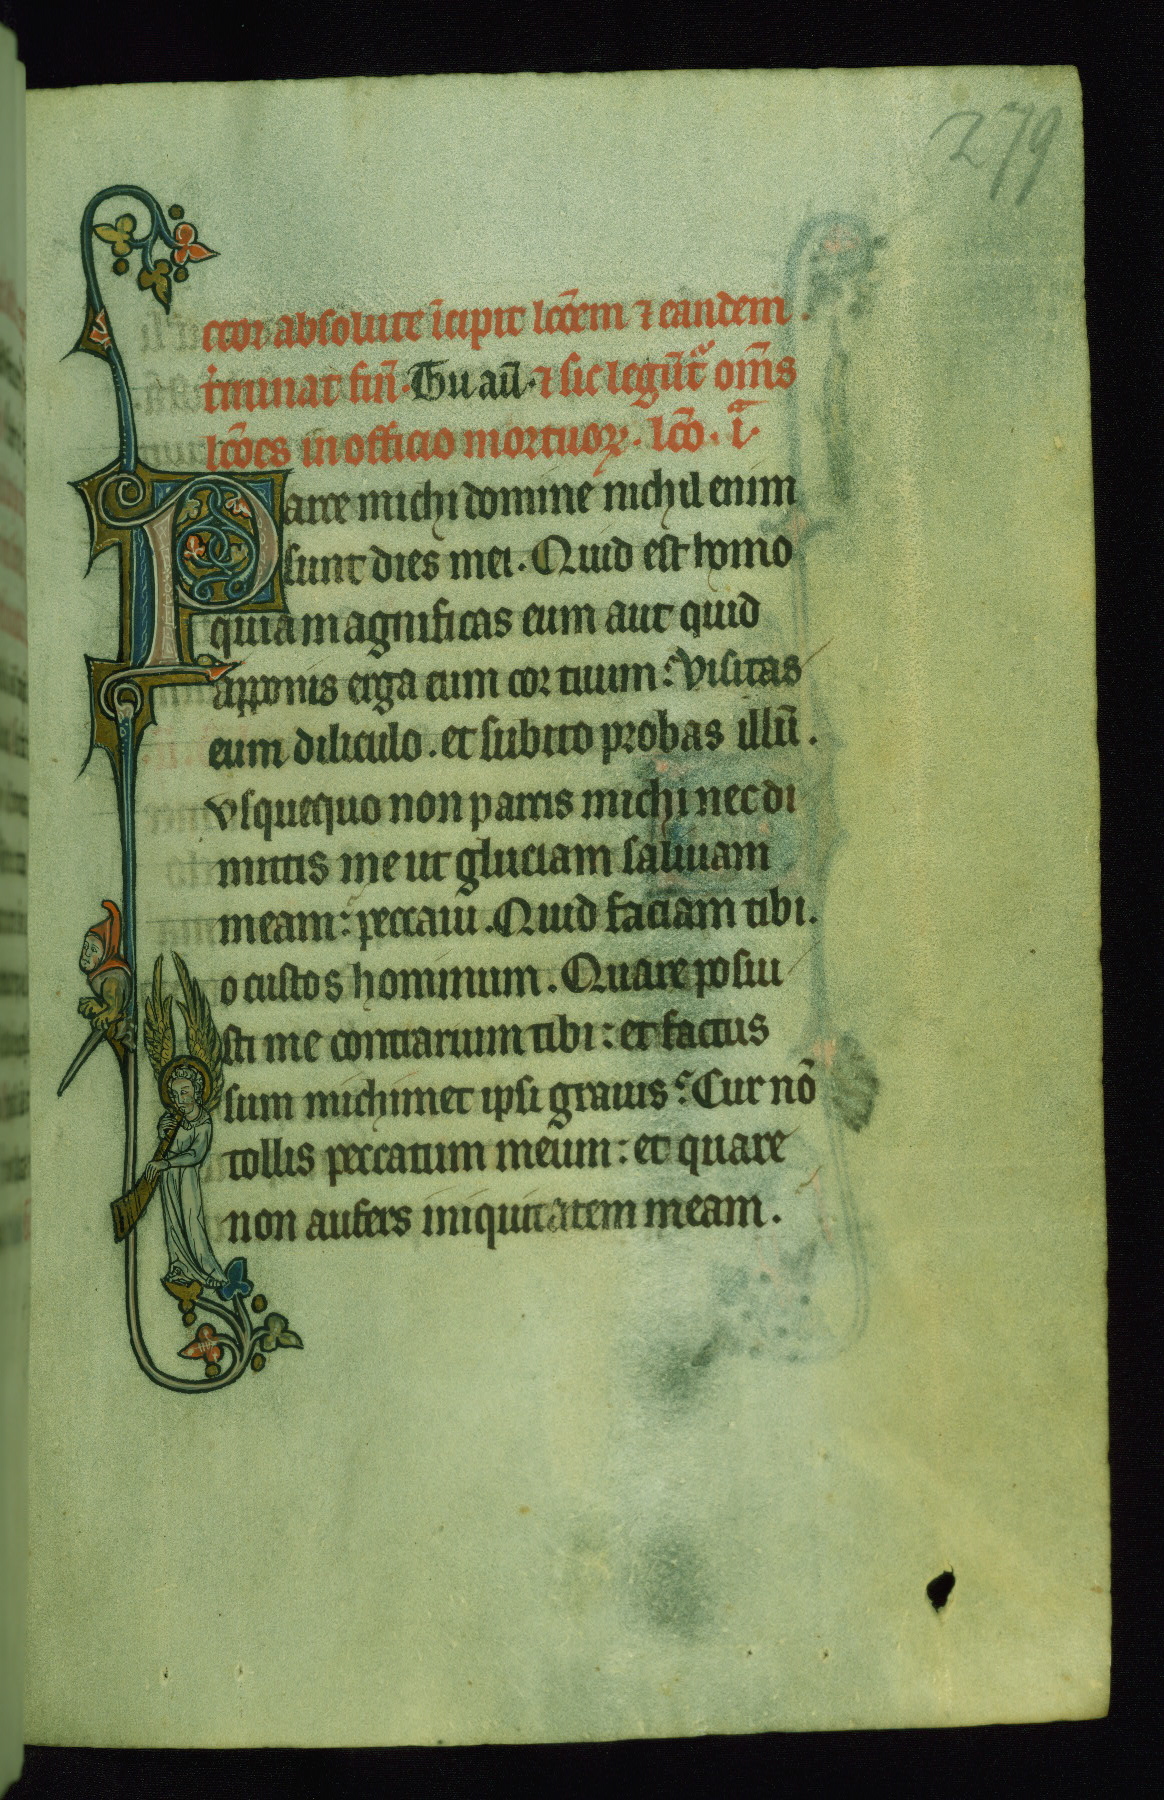 279
ctor absolute ĩcipit lcõem ⁊ eandem .
t̾minat sin̄ . Tu au̅ . ⁊ sic legũt̃ om̅s
lcões in officio mortuoꝝ . lcõ . iᵃ.
Parce michi domine nichil enim
sunt dies mei . Quid est homo
quia magnificas eum aut quid
apponis erga eum cor tuum : Visitas
eum diliculo . et subito probas illũ .
vsquequo non parcis michi nec di
mittis me ut gluciam saliuam
meam : peccaui . Quid faciam tibi .
o custos hominum . Quare posui
sti me contrarium tibi : et factus
sum michimet ipsi grauis : Cur nõ
tollis peccatum meum : et quare
non aufers iniquitatem meam .